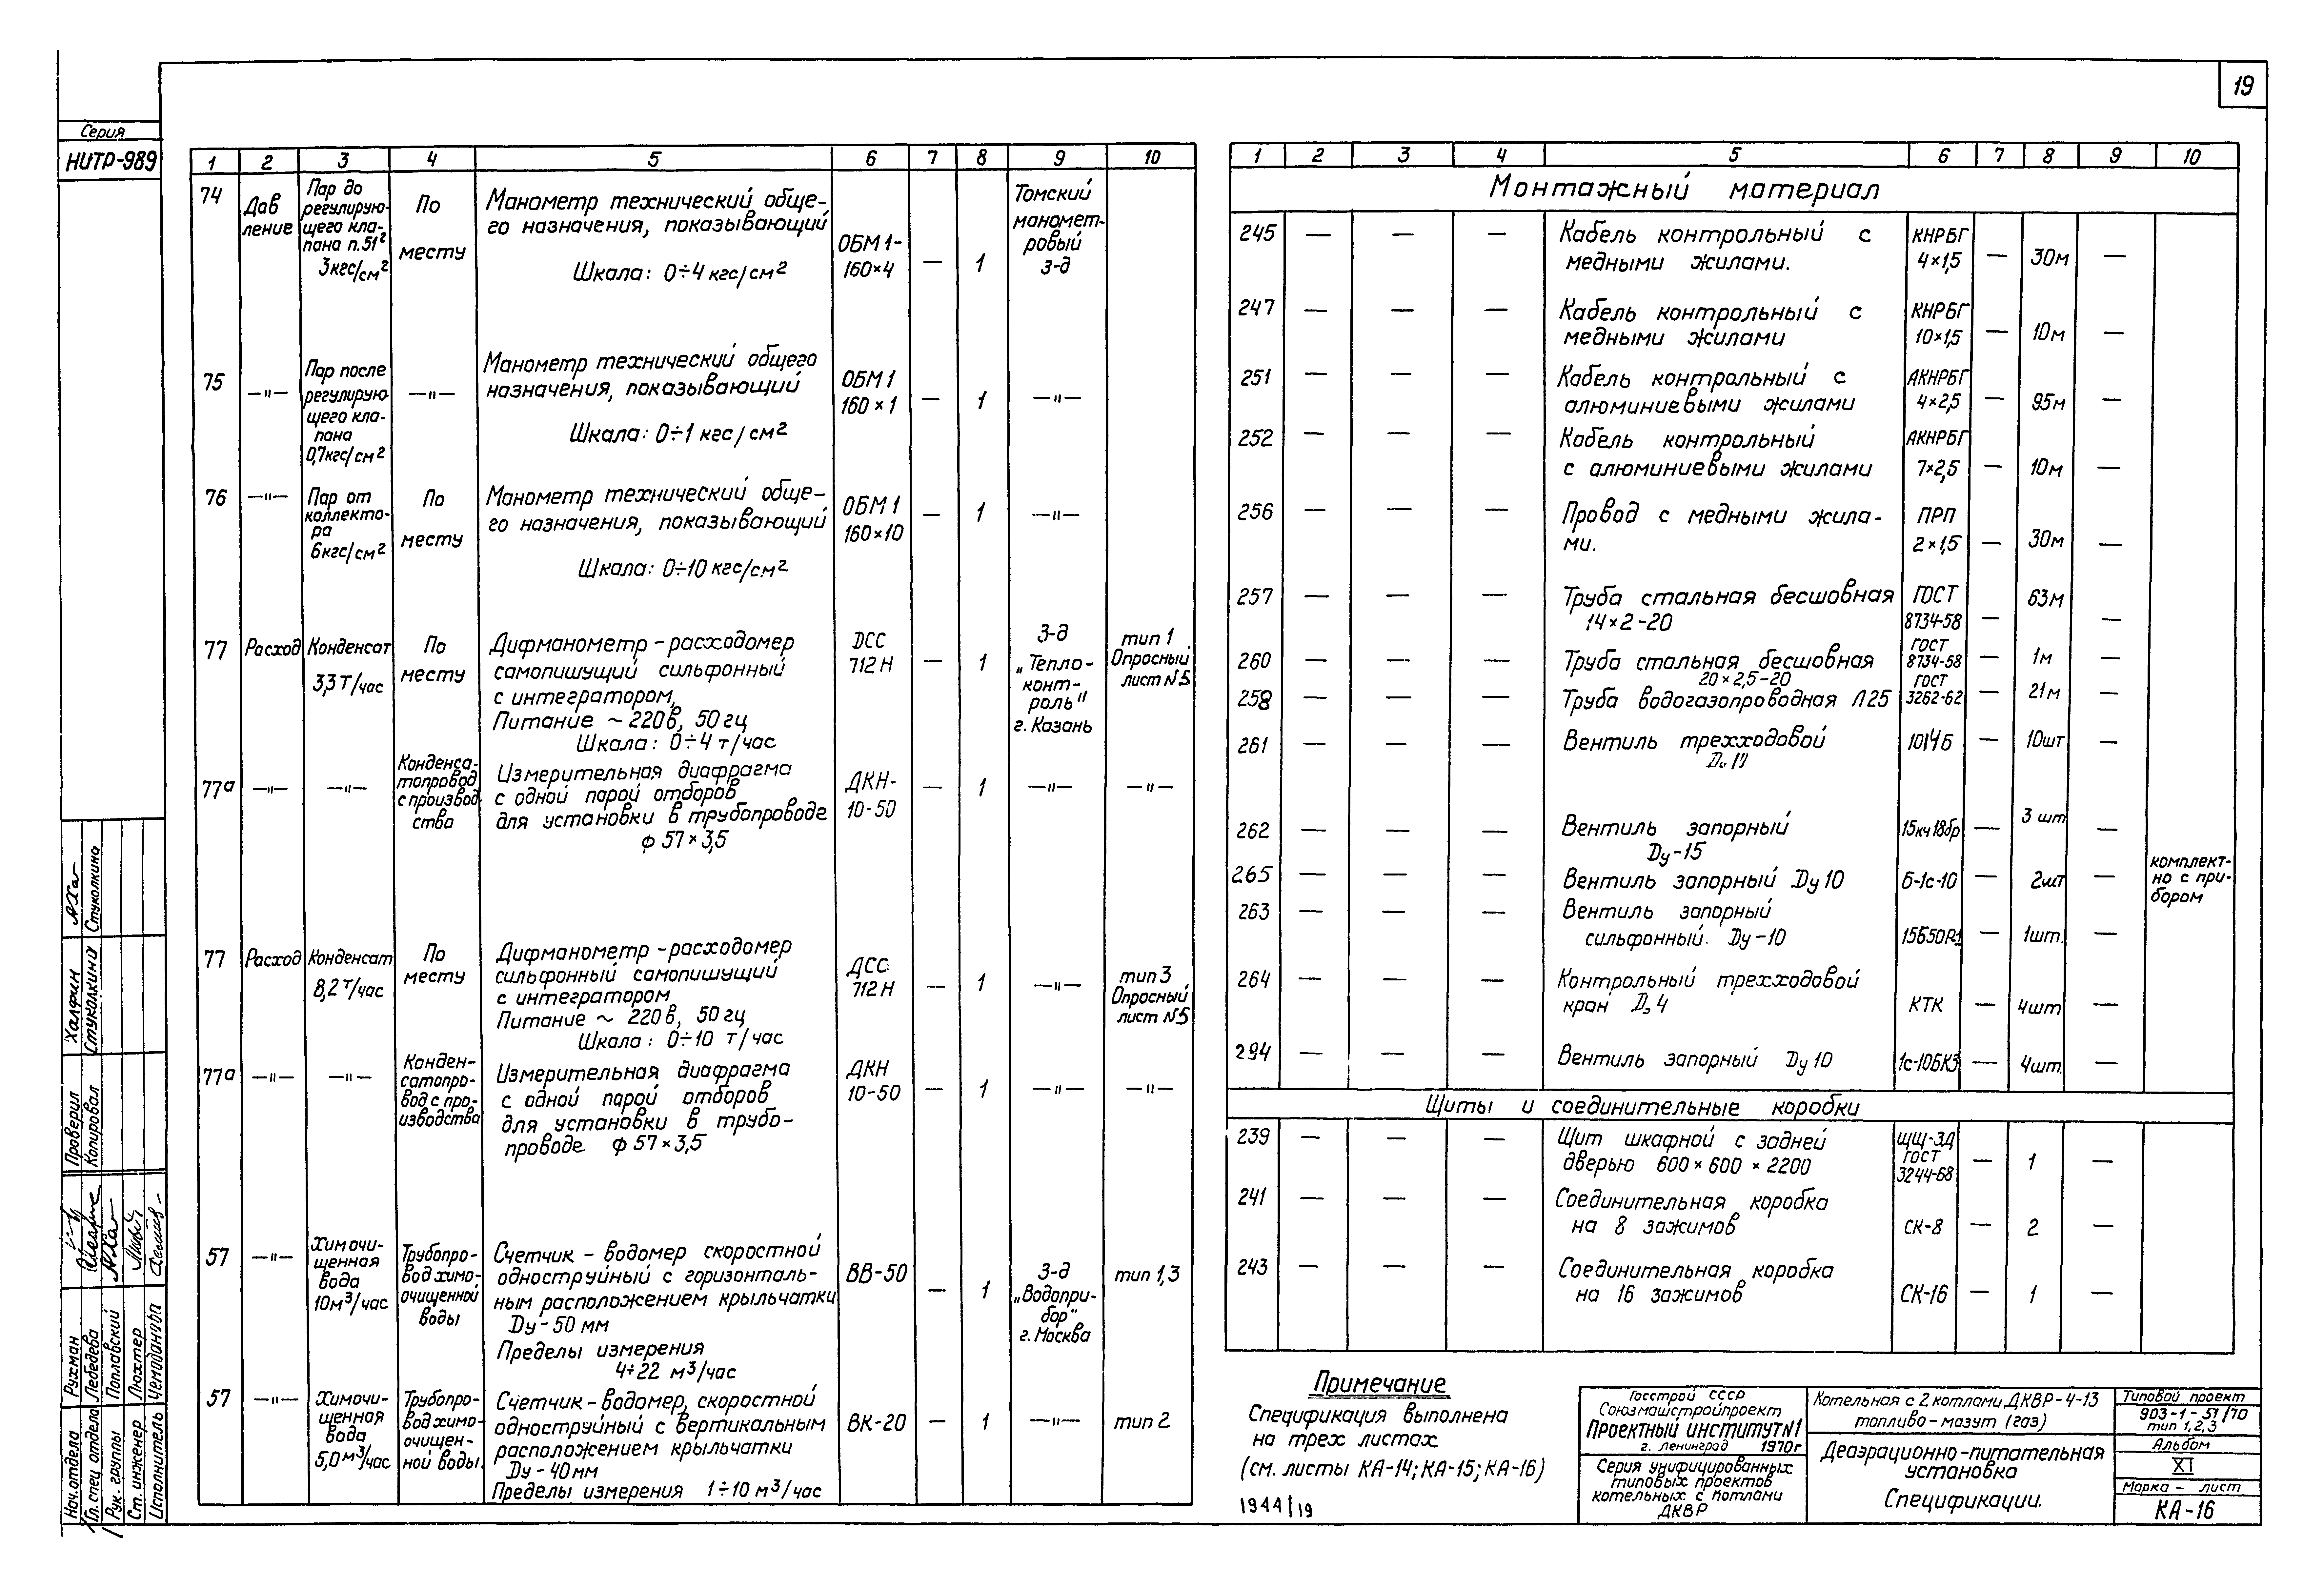 19
Серия
НИТР-989
1 2 3 4 5 6 7 8 9 10
74 Дав
ление Пар до
регулирую-
щего кла-
пана п.51г
3кгс/см² По
месту Манометр технический обще-
го назначения, показывающий
Шкала: 0÷4 кгс/см² ОБМ1-
160×4 — 1 Томский
маномет-
ровый
з-д
75 —"— Пар после
регулирую-
щего кла-
пана
0,7кгс/см² —"— Манометр технический общего
назначения, показывающий
Шкала: 0÷1 кгс/см² ОБМ1
160×1 — 1 —"—
76 —"— Пар от
коллекто-
ра
6кгс/см² По
месту Манометр технический обще-
го назначения, показывающий
Шкала: 0÷10 кгс/см² ОБМ1
160×10 — 1 —"—
77 Расход Конденсат
3,3 т/час По
месту Дифманометр-расходомер
самопишущий сильфонный
с интегратором,
Питание ~ 220в, 50 гц
Шкала: 0÷4 т/час DСС
712Н — 1 З-д
„Тепло-
конт-
роль"
г. Казань тип 1
Опросный
лист №5
77а —"— —"— Конденса-
топровод
с производ-
ства Измерительная диафрагма
с одной парой отборов
для установки в трубопроводе
ф 57×3,5 ДКН-
10-50 — 1 —"— —"—
77 Расход Конденсат
8,2 т/час По
месту Дифманометр-расходомер
сильфонный самопишущий
с интегратором
Питание ~ 220в, 50 гц
Шкала: 0÷10 т/час ДСС
712Н — 1 —"— тип 3
Опросный
лист №5
77а —"— —"— Конден-
сатопро-
вод с про-
изводства Измерительная диафрагма
с одной парой отборов
для установки в трубо-
проводе ф 57×3,5 ДКН
10-50 — 1 —"— —"—
57 —"— Химочи-
щенная
вода
10м³/час Трубопро-
вод химо-
очищенной
воды Счетчик-водомер скоростной
одноструйный с горизонталь-
ным расположением крыльчатки
Dу-50 мм
Пределы измерения
4÷22 м³/час ВВ-50 — 1 З-д
„Водопри-
бор"
г. Москва тип 1,3
57 —"— Химочи-
щенная
вода
5,0м³/час Трубопро-
вод химо-
очищен-
ной воды Счетчик-водомер, скоростной
одноструйный с вертикальным
расположением крыльчатки
Dу-40мм
Пределы измерения 1÷10 м³/час ВК-20 — 1 —"— тип 2
1 2 3 4 5 6 7 8 9 10
Монтажный материал
245 — — — Кабель контрольный с
медными жилами. КНРБГ
4×1,5 — 30м —
247 — — — Кабель контрольный с
медными жилами КНРБГ
10×1,5 — 10м —
251 — — — Кабель контрольный с
алюминиевыми жилами АКНРБГ
4×2,5 — 95м —
252 — — — Кабель контрольный
с алюминиевыми жилами АКНРБГ
7×2,5 — 10м —
256 — — — Провод с медными жила-
ми. ПРП
2×1,5 — 30м —
257 — — — Труба стальная бесшовная
14×2-20 ГОСТ
8734-58 — 63м —
260 — — — Труба стальная бесшовная
20×2,5-20 ГОСТ
8734-58 — 1м —
258 — — — Труба водогазопроводная Л25 ГОСТ
3262-62 — 21м —
261 — — — Вентиль трехходовой
1014Б — 10шт —
262 — — — Вентиль запорный
Dу-15 15кч18бр — 3 шт —
265 — — — Вентиль запорный Dу10 Б-1с-10 — 2шт — комплект-
но с при-
бором
263 — — — Вентиль запорный
сильфонный. Dу-10 — 1шт. —
264 — — — Контрольный трехходовой
кран КТК — 4шт —
294 — — — Вентиль запорный Dу10 1с-10БК3 — 4шт. —
Щиты и соединительные коробки
239 — — — Щит шкафной с задней
дверью 600×600×2200 ЩЩ-ЗД
ГОСТ
3244-68 — 1 —
241 — — — Соединительная коробка
на 8 зажимов СК-8 — 2 —
243 — — — Соединительная коробка
на 16 зажимов СК-16 — 1 —
Примечание
Спецификация выполнена
на трех листах
(см. листы КА-14; КА-15; КА-16)
1944/19
Госстрой СССР
Союзмашстройпроект
Проектный институт №1
г. Ленинград 1970г
Серия унифицированных
типовых проектов
котельных с котлами
ДКВР
Котельная с 2 котлами ДКВР-4-13
топливо-мазут (газ)
Деаэрационно-питательная
установка
Спецификации.
Типовой проект
903-1-51/70
тип 1,2,3
Альбом
XI
Марка - лист
КА-16
Проверил Халфин
Копировал Стуколкина Стуколкина
Нач. отдела Рухман
Гл. спец отдела Лебедева
Рук. группы Поплавский
Ст. инженер Люхтер
Исполнитель Чемоданова